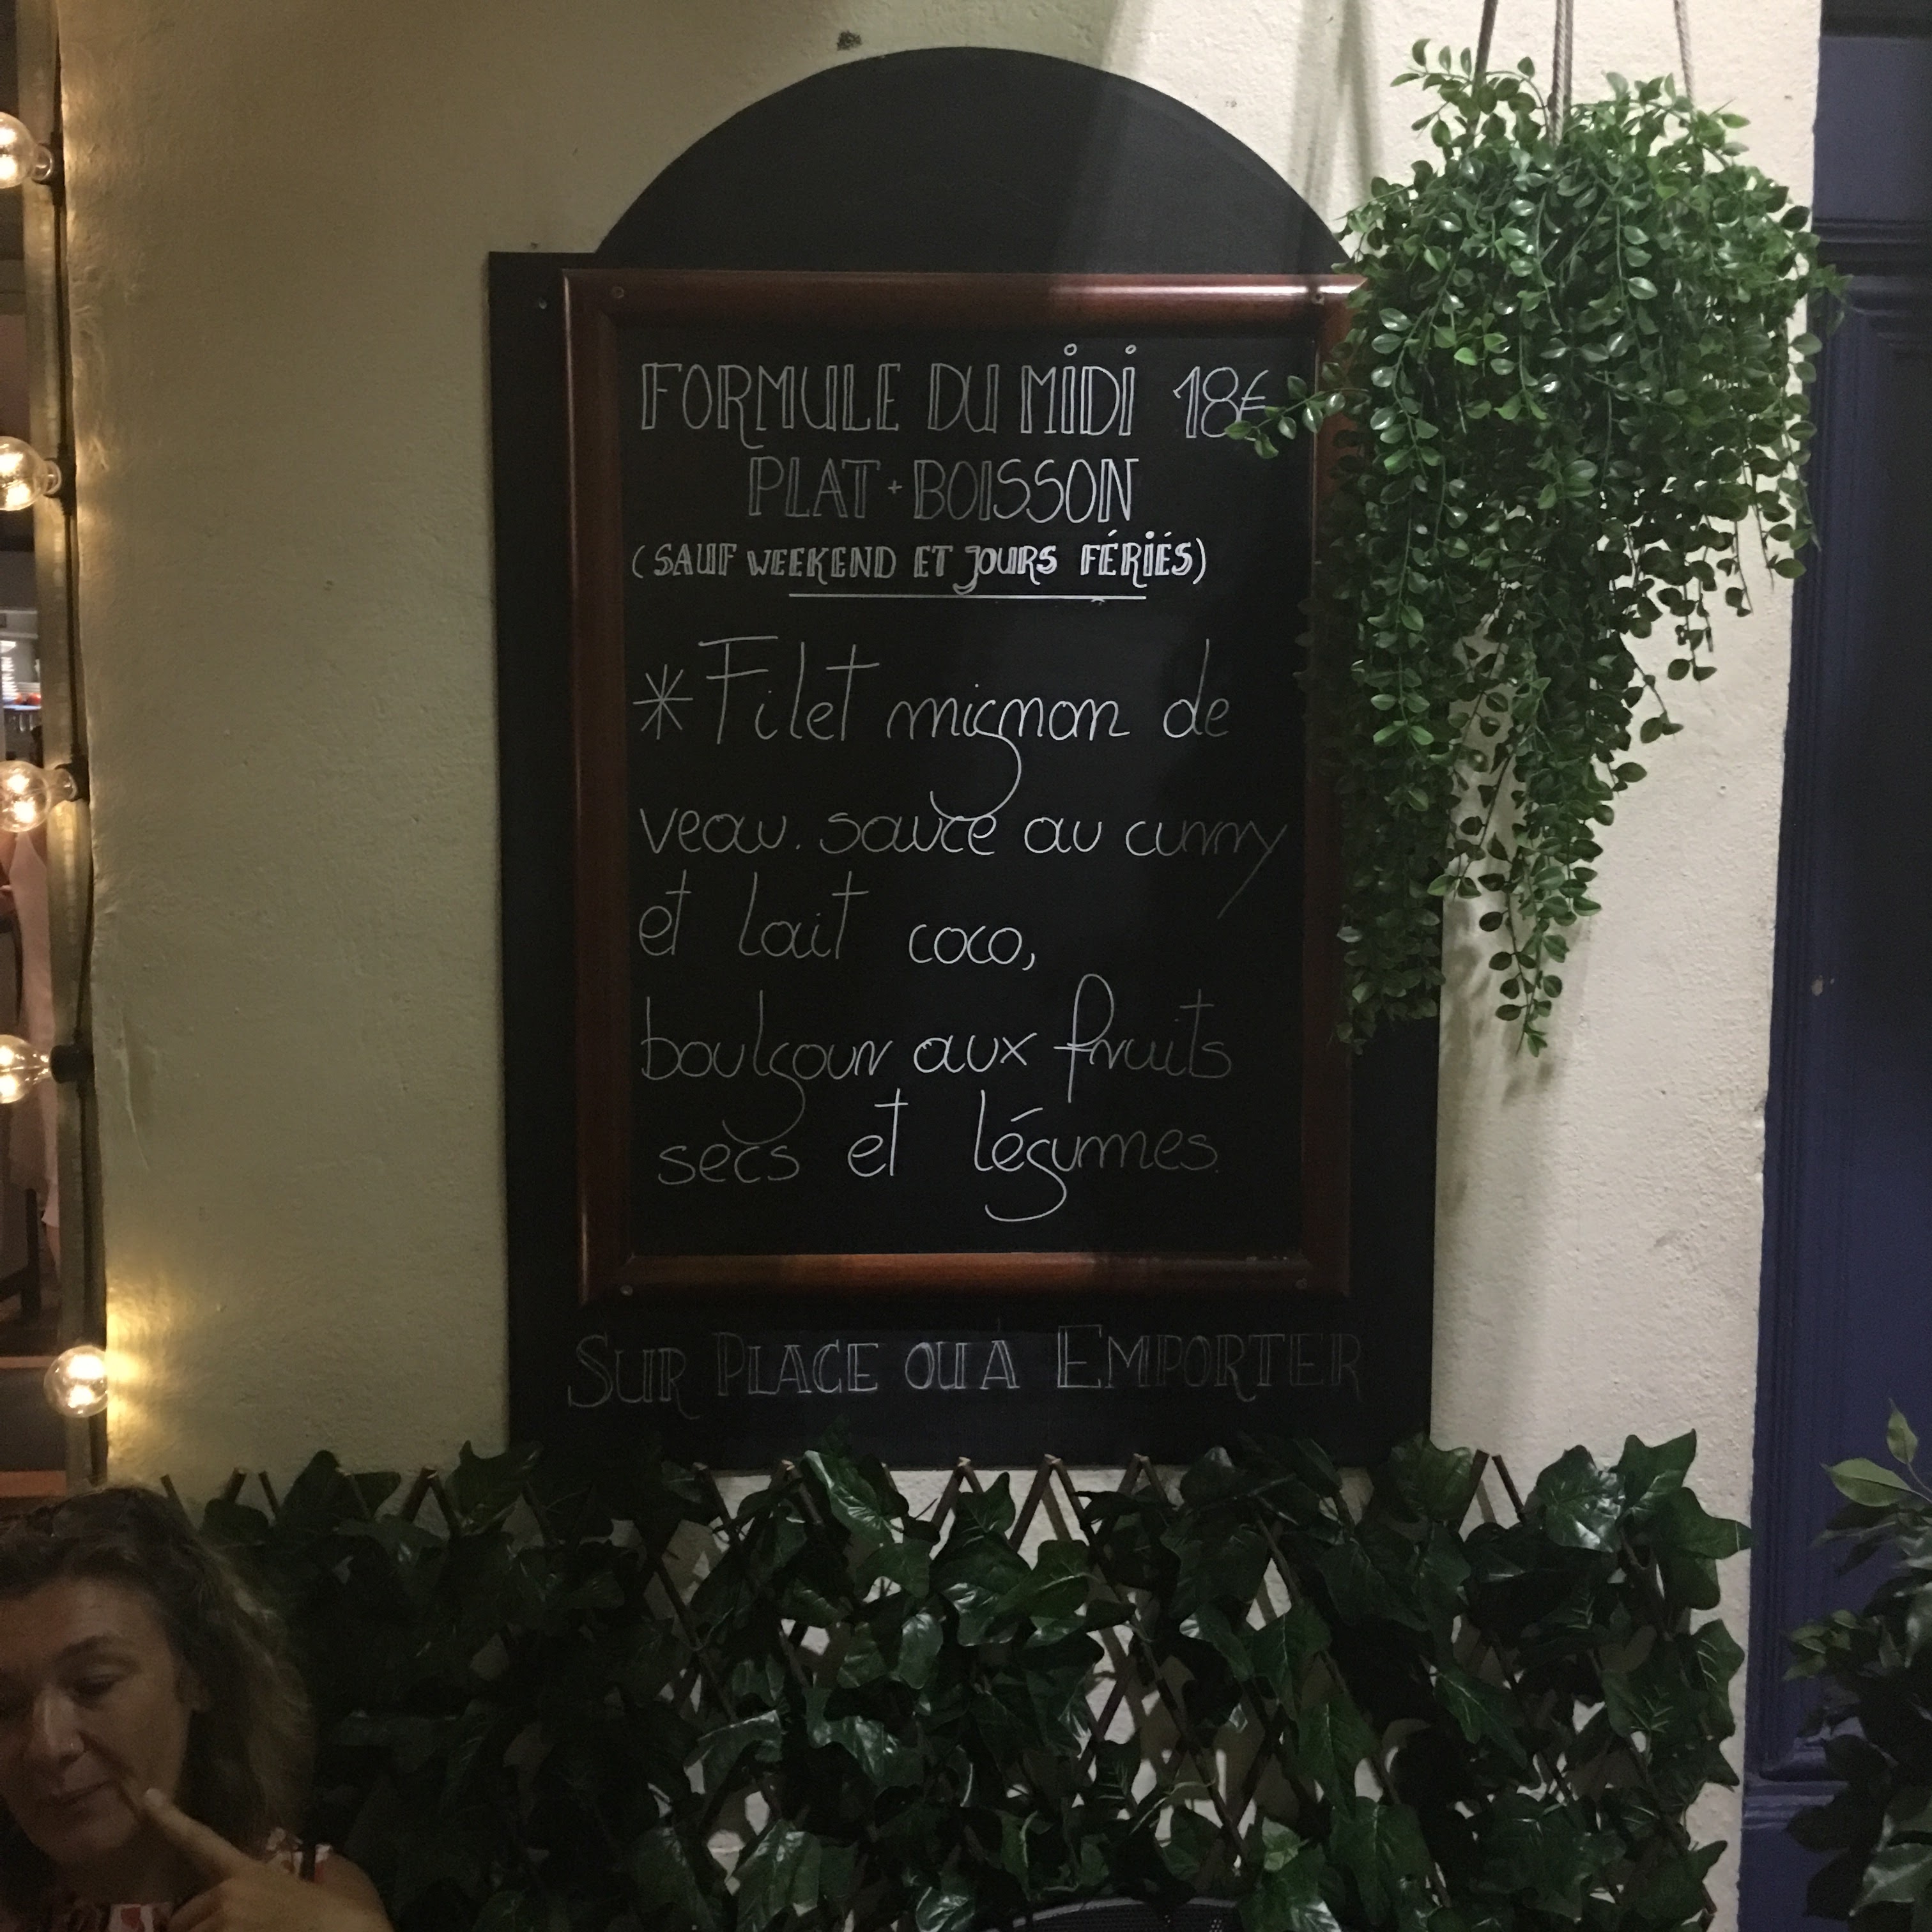 FORMULE DU MIDI 18€
PLAT + BOISSON
(SAUF WEEKEND ET JOURS FÉRIÉS)
* Filet mignon de
veau. sauce au curry
et lait coco,
boulgour aux fruits
secs et légumes.
SUR PLACE OU À EMPORTER